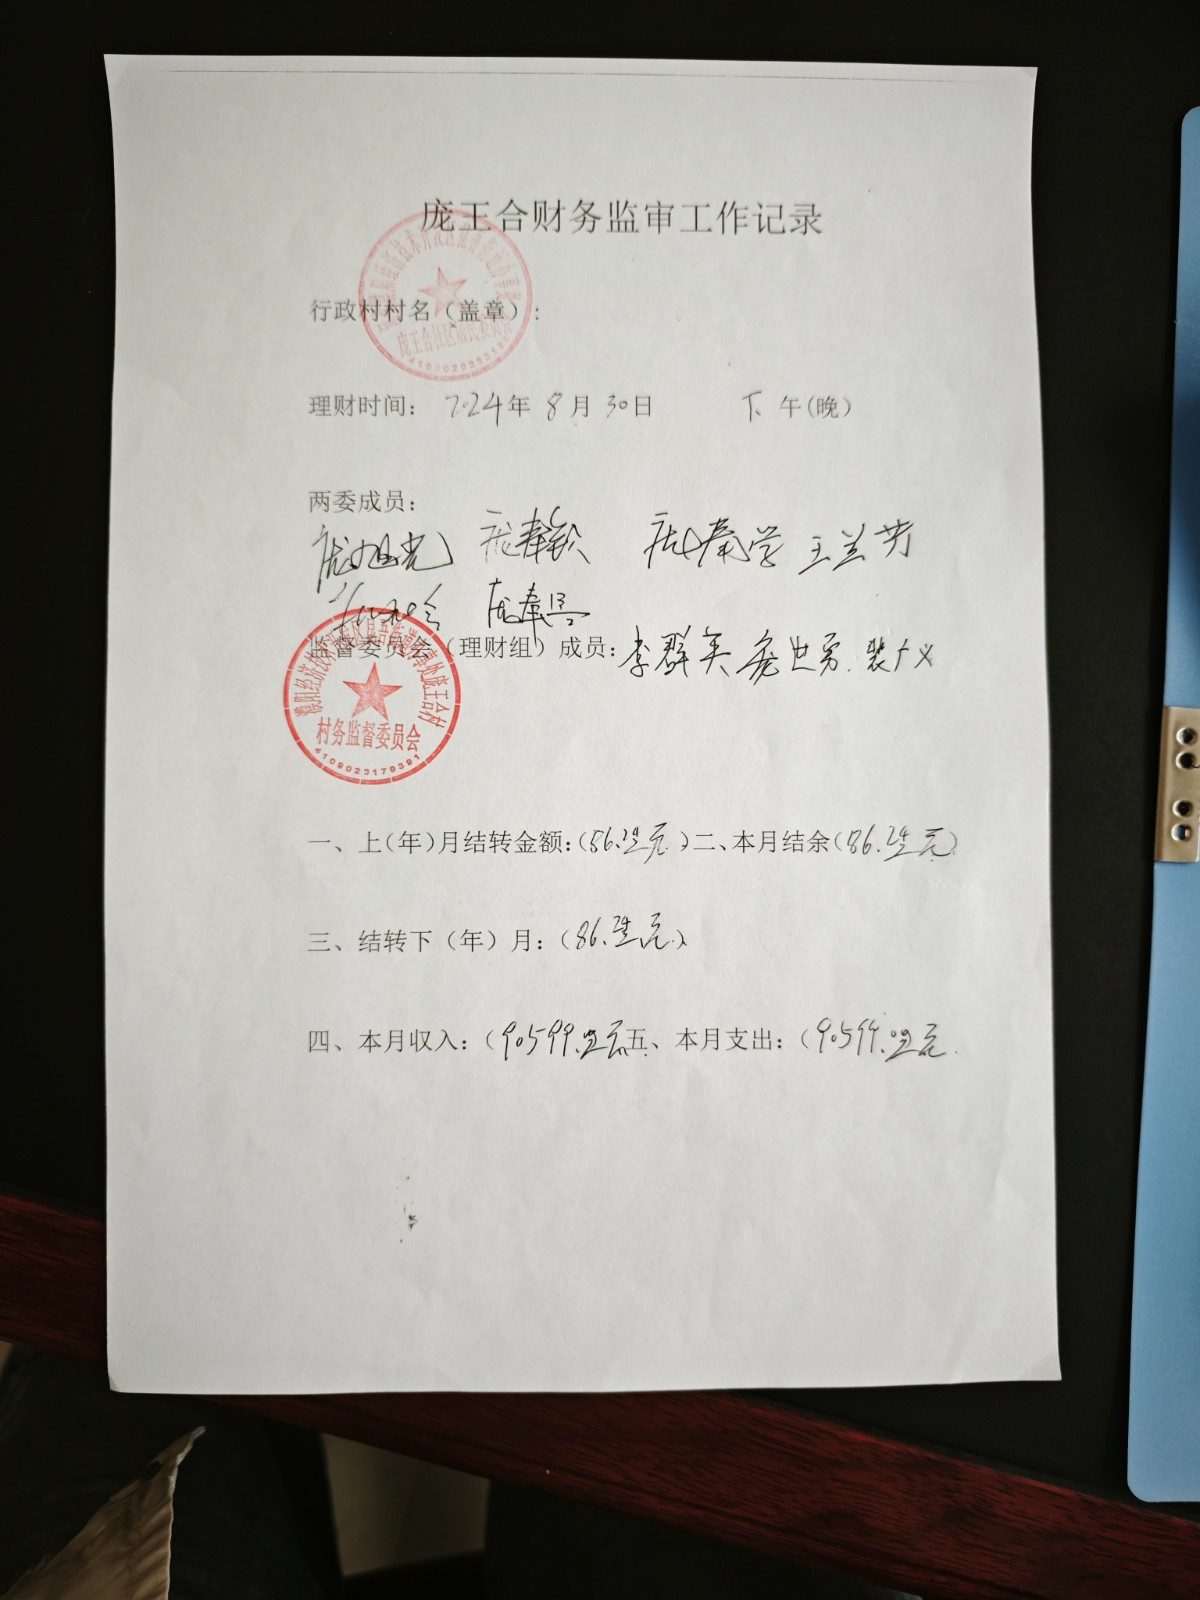 庞王合财务监审工作记录
行政村村名（盖章）:
庞王合社区居民委员会
理财时间: 2024年 8月 30日 下 午(晚)
两委成员:
庞旭光 庞奉钦 庞奉学 王兰芳
庞奉昌
监督委员会（理财组）成员: 李群英 庞世勇 裴广义
濮阳经济技术开发区昌吾街道办事处庞王合村
村务监督委员会
4109023179391
一、上(年)月结转金额:(86. 元)二、本月结余(86. 元)
三、结转下（年）月:（86. 元）
四、本月收入:（90599. 元 五、本月支出:（90599. 元